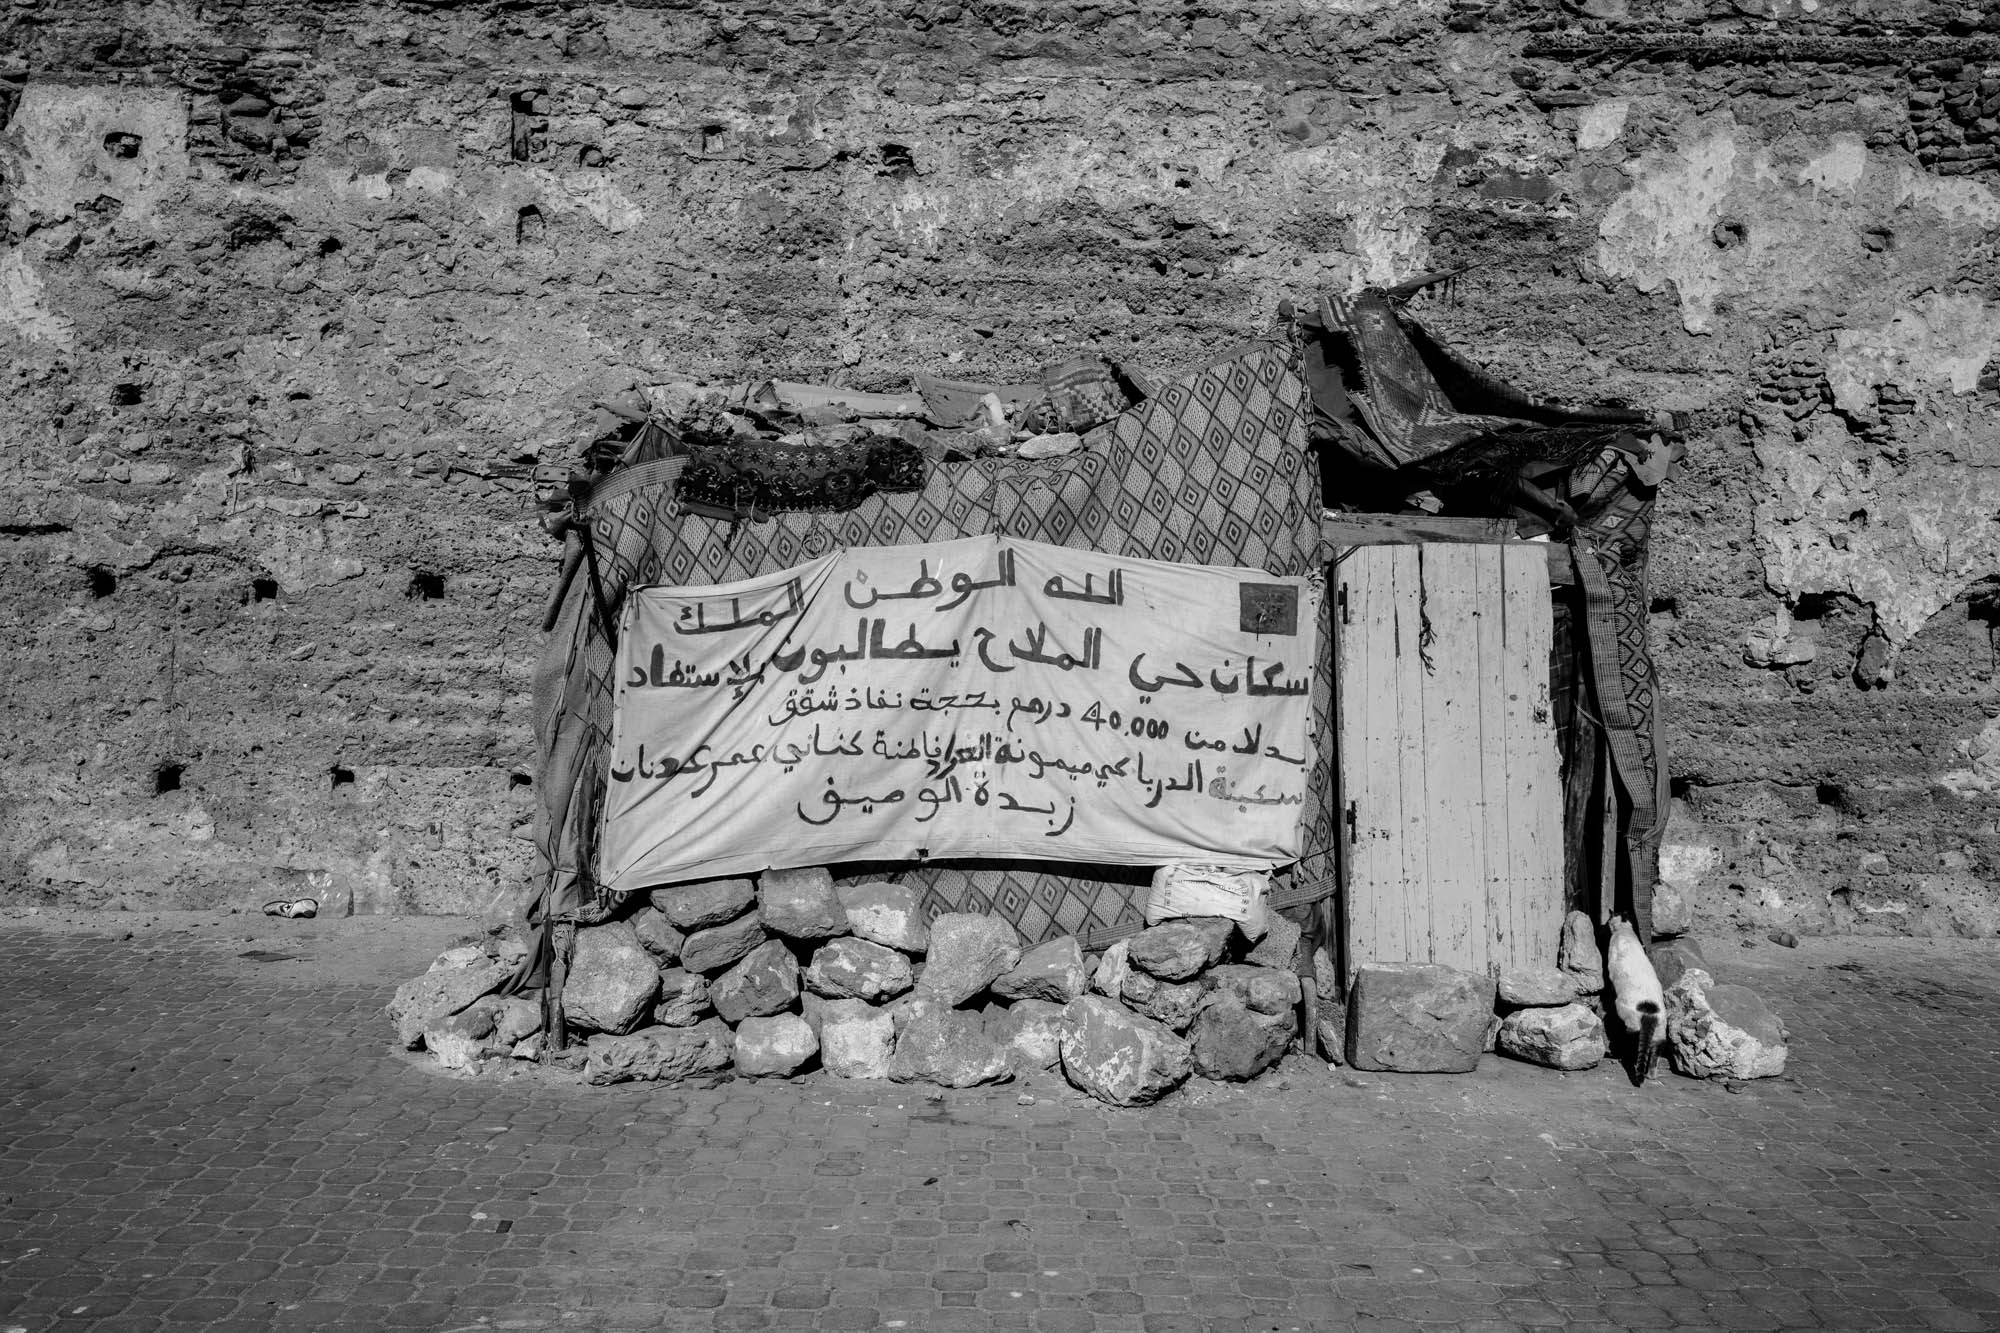 الله الوطن الملك
سكان حي الملاح يطالبون بالإستفاد
بدلا من 40.000 درهم بحجة نفاذ شقق
سكينة الدرباكي ميمونة الغراد فاطنة كناني عمر عدنان
زبدة الوصيف